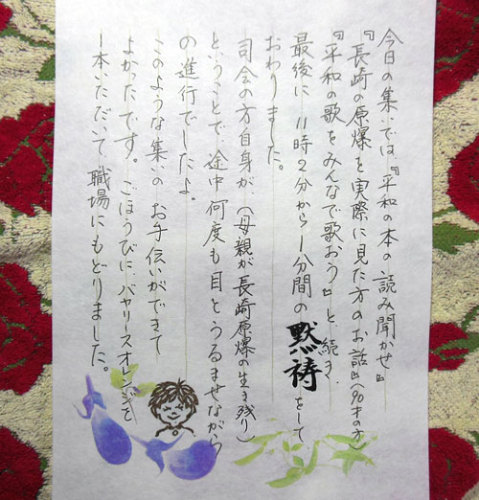 今日の集いでは『平和の本の読み聞かせ』
『長崎の原爆を実際に見た方のお話』(90才の方)
『平和の歌をみんなで歌おう』と続き、
最後に11時2分から1分間の黙祷をして
おわりました。
司会の方自身が、(母親が長崎原爆の生き残り)
ということで途中何度も目をうるませながら
の進行でしたよ。
このような集いのお手伝いができて
よかったです。ごほうびにバヤリースオレンジを
1本いただいて職場にもどりました。